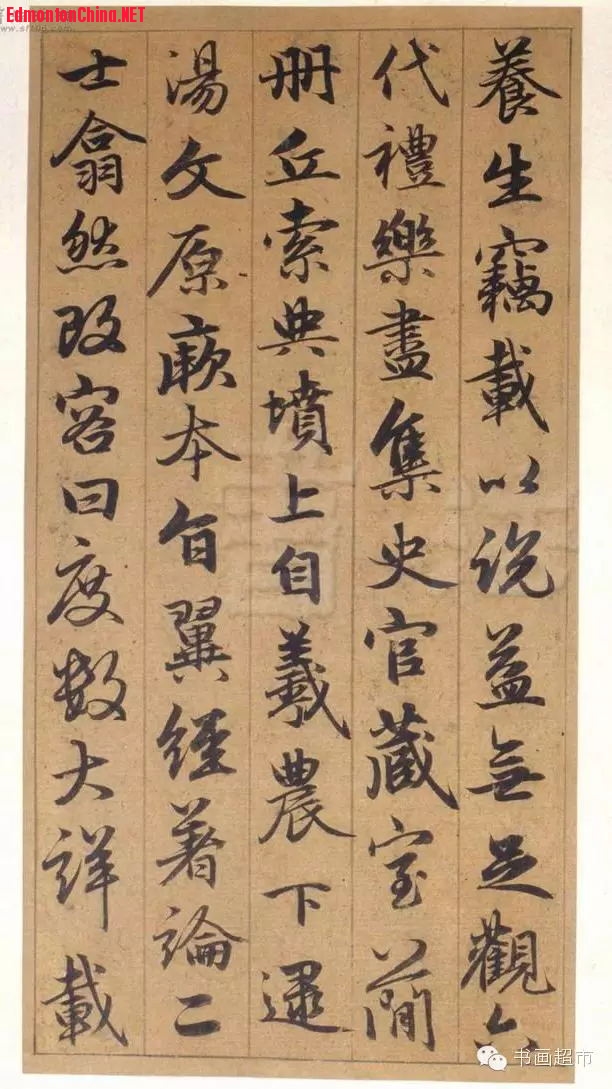 EdmontonChina.NET
養生竊載以說益無足觀六
代禮樂盡集史官藏室簡
册丘索典墳上自羲農下逮
湯文原厥本旨翼經著論二
士翕然改容曰度數大詳載
书画超市